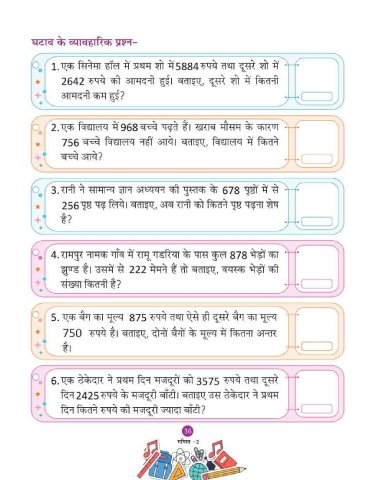 घटाव के व्यावहारिक प्रश्न-
1. एक सिनेमा हॉल में प्रथम शो में 5884 रुपये तथा दूसरे शो में
2642 रुपये की आमदनी हुई। बताइए, दूसरे शो में कितनी
आमदनी कम हुई?
2. एक विद्यालय में 968 बच्चे पढ़ते हैं। खराब मौसम के कारण
756 बच्चे विद्यालय नहीं आये। बताइए, विद्यालय में कितने
बच्चे आये?
3. रानी ने सामान्य ज्ञान अध्ययन की पुस्तक के 678 पृष्ठों में से
256 पृष्ठ पढ़ लिये। बताइए, अब रानी को कितने पृष्ठ पढ़ना शेष
है?
4. रामपुर नामक गाँव में रामू गडरिया के पास कुल 878 भेड़ों का
झुण्ड है। उसमें से 222 मेमने हैं तो बताइए, वयस्क भेड़ों की
संख्या कितनी है?
5. एक बैग का मूल्य 875 रुपये तथा ऐसे ही दूसरे बैग का मूल्य
750 रुपये है। बताइए, दोनों बैगों के मूल्य में कितना अन्तर
है।
6. एक ठेकेदार ने प्रथम दिन मजदूरों को 3575 रुपये तथा दूसरे
दिन 2425 रुपये के मजदूरी बाँटी। बताइए उस ठेकेदार ने प्रथम
दिन कितने रुपये की मजदूरी ज्यादा बाँटी?
36
गणित -2